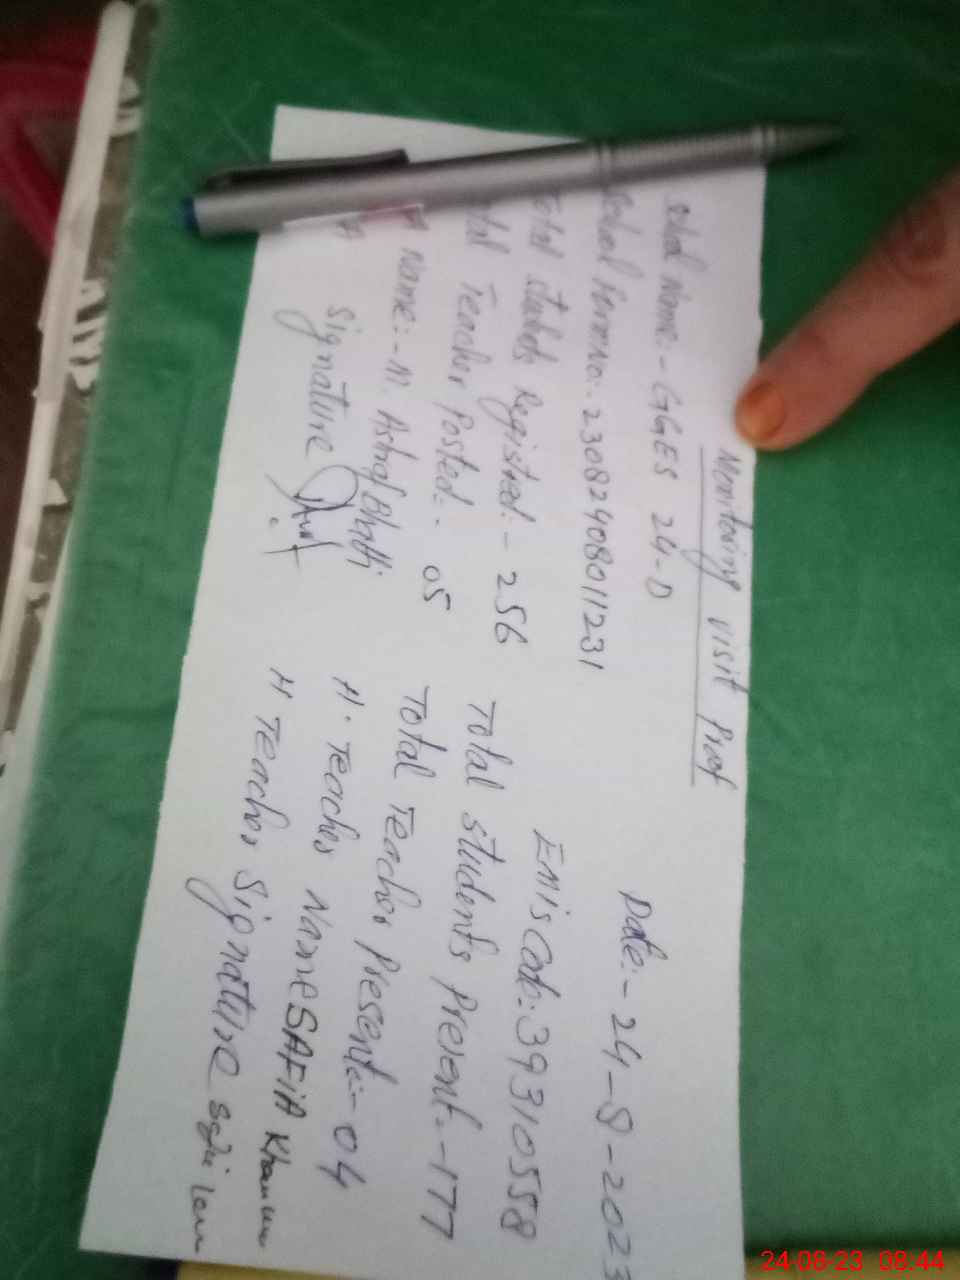 Monitoring visit Proof
School Name:- GGES 24-D
Date:- 24-8-2023
School Form No:- 23082408011231
Emis Code:- 39310558
Total students Registred:- 256
Total students Present:- 177
Total Teacher Posted:- 05
Total Teacher Present:- 04
A Name:- M. Ashraf Bhatti
H. Teacher Name SAFiA Khanum
A Signature
H Teacher Signature
24-08-23 08:44